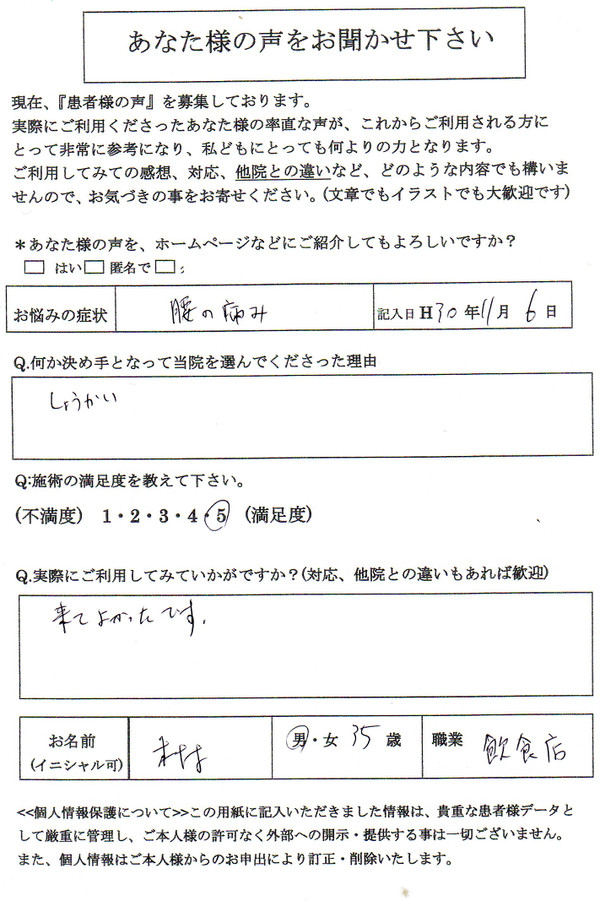 あなた様の声をお聞かせ下さい
現在、『患者様の声』を募集しております。
実際にご利用くださったあなた様の率直な声が、これからご利用される方に
とって非常に参考になり、私どもにとっても何よりの力となります。
ご利用してみての感想、対応、他院との違いなど、どのような内容でも構いま
せんので、お気づきの事をお寄せください。(文章でもイラストでも大歓迎です)
＊あなた様の声を、ホームページなどにご紹介してもよろしいですか？
□ はい □ 匿名で □；
お悩みの症状 腰の痛み 記入日 H30年11月6日
Q.何か決め手となって当院を選んでくださった理由
しょうかい
Q:施術の満足度を教えて下さい。
(不満度) 1・2・3・4・5 (満足度)
Q.実際にご利用してみていかがですか？(対応、他院との違いもあれば歓迎)
来てよかったです.
お名前 男・女 35歳 職業 飲食店
(イニシャル可)
<<個人情報保護について>>この用紙に記入いただきました情報は、貴重な患者様データと
して厳重に管理し、ご本人様の許可なく外部への開示・提供する事は一切ございません。
また、個人情報はご本人様からのお申出により訂正・削除いたします。